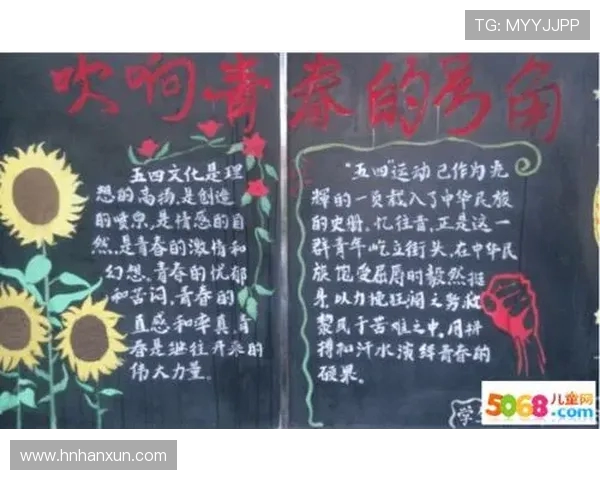 TG: MYYJJPP
吹响青春的号角
五四文化是理
想的高扬,是创造
的喷泉,是情感的自
然,是青春的激情和
幻想。青春的忧郁
和苦闷,青春的
直感和率真,青
春是继往开来的
伟大力量。
“五四”运动已作为光
辉的一页载入了中华民族
的史册。忆往昔,正是这一
群青年屹立街头,在中华民
族饱受屈辱时毅然挺
身,以力挽狂澜之势救
黎民于苦难之中,用拼
搏和汗水演绎青春的
硕果。
学
5068儿童网
.com
www.hnhanxun.com